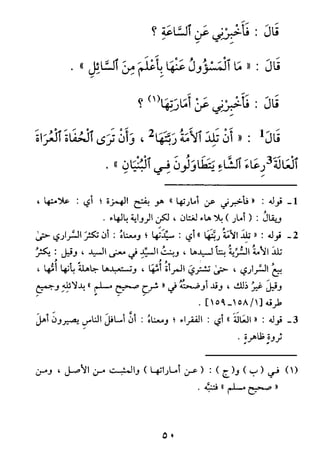 قَالَ : فَأَخْبِرْنِي عَنِ السَّاعَةِ ؟
قَالَ : « مَا الْمَسْؤُولُ عَنْهَا بِأَعْلَمَ مِنَ السَّائِلِ » .
قَالَ : فَأَخْبِرْنِي عَنْ أَمَارَتِهَا(١) ؟
قَالَ1 : « أَنْ تَلِدَ الأَمَةُ رَبَّتَهَا2 ، وَأَنْ تَرَى الْحُفَاةَ الْعُرَاةَ
الْعَالَةَ3 رِعَاءَ الشَّاءِ يَتَطَاوَلُونَ فِي الْبُنْيَانِ » .
1 - قوله : « فأخبرني عن أمارتها » هو بفتح الهمزة ؛ أي : علامتها ،
ويقالُ : ( أمار ) بلا هاء لغتان ، لكن الرواية بالهاء .
2 - قوله : « تلدَ الأمةُ ربَّتَهَا » أي : سيِّدَتَها ؛ ومعناهُ : أن تكثرَ السَّراري حتىٰ
تلدَ الأمةُ السُّرِّيةُ بنتاً لسيدها ، وبنتُ السيِّدِ في معنى السيد ، وقيل : يكثرُ
بيعُ السَّراري ، حتىٰ تشتريَ المرأةُ أُمَّهَا ، وتستعبدها جاهلةً بأنها أُمُّها ،
وقيلَ غيرُ ذلك ، وقد أوضحتُهُ في « شرح صحيح مسلم » بدلائلِهِ وجميع
طرقه [١/ ١٥٨-١٥٩] .
3 - قوله : « العالَةَ » أي : الفقراء ؛ ومعناهُ : أنَّ أسافلَ الناسِ يصيرونَ أهلَ
ثروةٍ ظاهرةٍ .
(١) في ( ب ) و( ج ) : ( عـن أمـاراتهـا ) والمثبـت مـن الأصـل ، ومـن
« صحيح مسلم » فتنبَّه .
٥٠